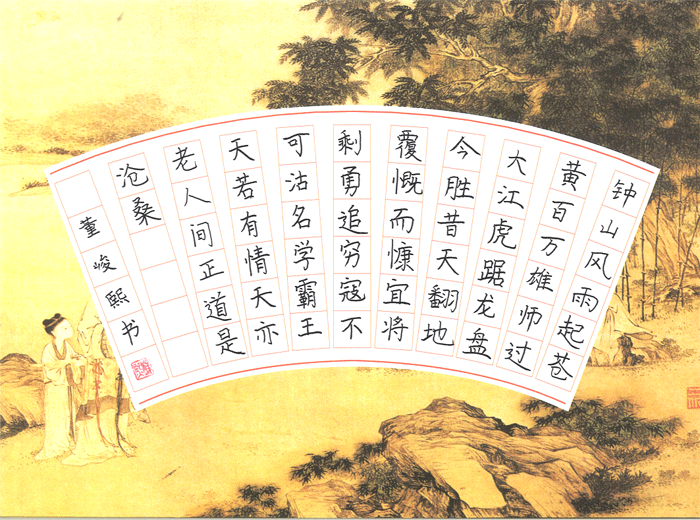 钟山风雨起苍
黄百万雄师过
大江虎踞龙盘
今胜昔天翻地
覆慨而慷宜将
剩勇追穷寇不
可沽名学霸王
天若有情天亦
老人间正道是
沧桑
董峻熙书